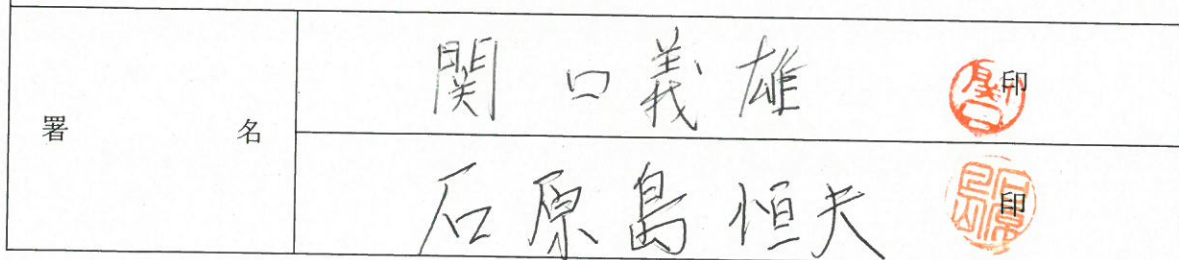 署名
関口義雄 印
石原島恒夫 印